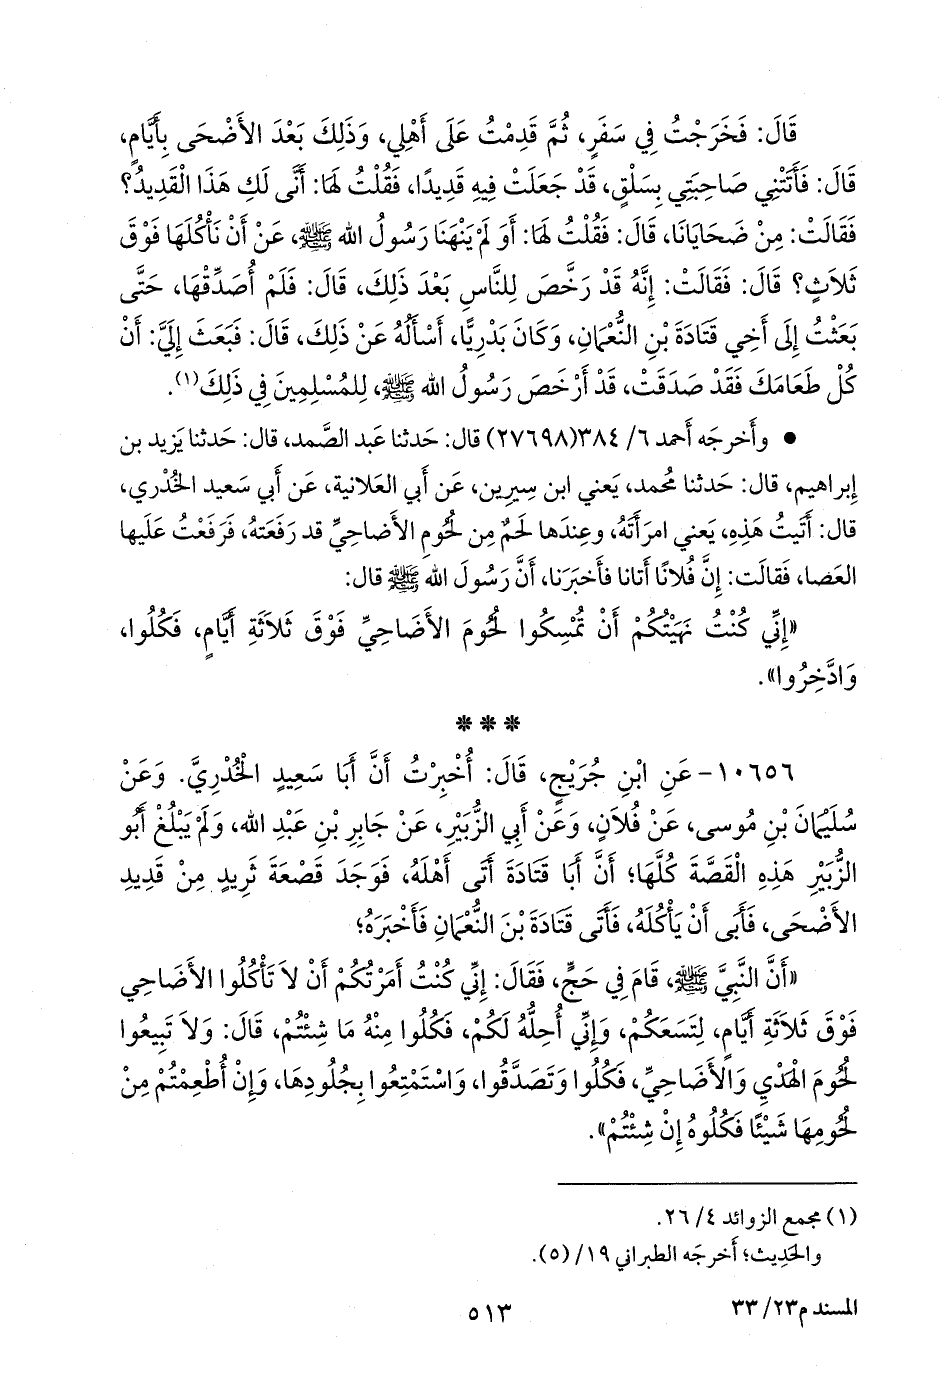 قَالَ: فَخَرَجْتُ فِي سَفَرٍ، ثُمَّ قَدِمْتُ عَلَى أَهْلِي، وَذَلِكَ بَعْدَ الأَضْحَى بِأَيَّامٍ،
قَالَ: فَأَتَتْنِي صَاحِبَتِي بِسَلْقٍ، قَدْ جَعَلَتْ فِيهِ قَدِيدًا، فَقُلْتُ لَهَا: أَنَّى لَكِ هَذَا الْقَدِيدُ؟
فَقَالَتْ: مِنْ ضَحَايَانَا، قَالَ: فَقُلْتُ لَهَا: أَوَ لَمْ يَنْهَنَا رَسُولُ الله ﷺ، عَنْ أَنْ نَأْكُلَهَا فَوْقَ
ثَلاَثٍ؟ قَالَ: فَقَالَتْ: إِنَّهُ قَدْ رَخَّصَ لِلنَّاسِ بَعْدَ ذَلِكَ، قَالَ: فَلَمْ أُصَدِّقْهَا، حَتَّى
بَعَثْتُ إِلَى أَخِي قَتَادَةَ بْنِ النُّعْمَانِ، وَكَانَ بَدْرِيًّا، أَسْأَلُهُ عَنْ ذَلِكَ، قَالَ: فَبَعَثَ إِلَيَّ: أَنْ
كُلْ طَعَامَكَ فَقَدْ صَدَقَتْ، قَدْ أَرْخَصَ رَسُولُ الله ﷺ، لِلْمُسْلِمِينَ فِي ذَلِكَ(١).
● وأَخرجَه أَحمد ٦/ ٣٨٤(٢٧٦٩٨) قال: حَدثنا عَبد الصَّمد، قال: حَدثنا يَزيد بن
إِبراهيم، قال: حَدثنا مُحمد، يَعني ابن سِيرين، عَن أَبي العَلانية، عَن أَبي سَعيد الخُدْري،
قال: أَتَيتُ هَذِهِ، يَعني امرَأَتَهُ، وعِندَها لَحَمٌ مِن لُحُومِ الأَضاحِيِّ قد رَفَعَتهُ، فَرَفَعْتُ عَلَيها
العَصا، فَقالَت: إِنَّ فُلاَنًا أَتانا فأَخبَرَنا، أَنَّ رَسُولَ الله ﷺ قال:
«إِنِّي كُنْتُ نَهَيْتُكُمْ أَنْ تُمْسِكُوا لُحُومَ الأَضَاحِيِّ فَوْقَ ثَلاَثَةِ أَيَّامٍ، فَكُلُوا،
وَادَّخِرُوا».
* * *
١٠٦٥٦- عَنِ ابْنِ جُرَيْجٍ، قَالَ: أُخْبِرْتُ أَنَّ أَبَا سَعِيدٍ الْخُدْرِيَّ. وَعَنْ
سُلَيْمَانَ بْنِ مُوسى، عَنْ فُلاَنٍ، وَعَنْ أَبِي الزُّبَيْرِ، عَنْ جَابِرِ بْنِ عَبْدِ الله، وَلَمْ يَبْلُغْ أَبُو
الزُّبَيْرِ هَذِهِ الْقَصَّةَ كُلَّهَا؛ أَنَّ أَبَا قَتَادَةَ أَتَى أَهْلَهُ، فَوَجَدَ قَصْعَةَ ثَرِيدٍ مِنْ قَدِيدِ
الأَضْحَى، فَأَبَى أَنْ يَأْكُلَهُ، فَأَتَى قَتَادَةَ بْنَ النُّعْمَانِ فَأَخْبَرَهُ؛
«أَنَّ النَّبِيَّ ﷺ، قَامَ فِي حَجٍّ، فَقَالَ: إِنِّي كُنْتُ أَمَرْتُكُمْ أَنْ لاَ تَأْكُلُوا الأَضَاحِي
فَوْقَ ثَلاَثَةِ أَيَّامٍ، لِتَسَعَكُمْ، وَإِنِّي أُحِلُّهُ لَكُمْ، فَكُلُوا مِنْهُ مَا شِئْتُمْ، قَالَ: وَلاَ تَبِيعُوا
لُحُومَ الْهَدْيِ وَالأَضَاحِيِّ، فَكُلُوا وَتَصَدَّقُوا، وَاسْتَمْتِعُوا بِجُلُودِهَا، وَإِنْ أُطْعِمْتُمْ مِنْ
لُحُومِهَا شَيْئًا فَكُلُوهُ إِنْ شِئْتُمْ».
(١) مجمع الزوائد ٤/ ٢٦.
والحَدِيث؛ أَخرجَه الطبراني ١٩/ (٥).
المسند م٢٣/ ٣٣
٥١٣